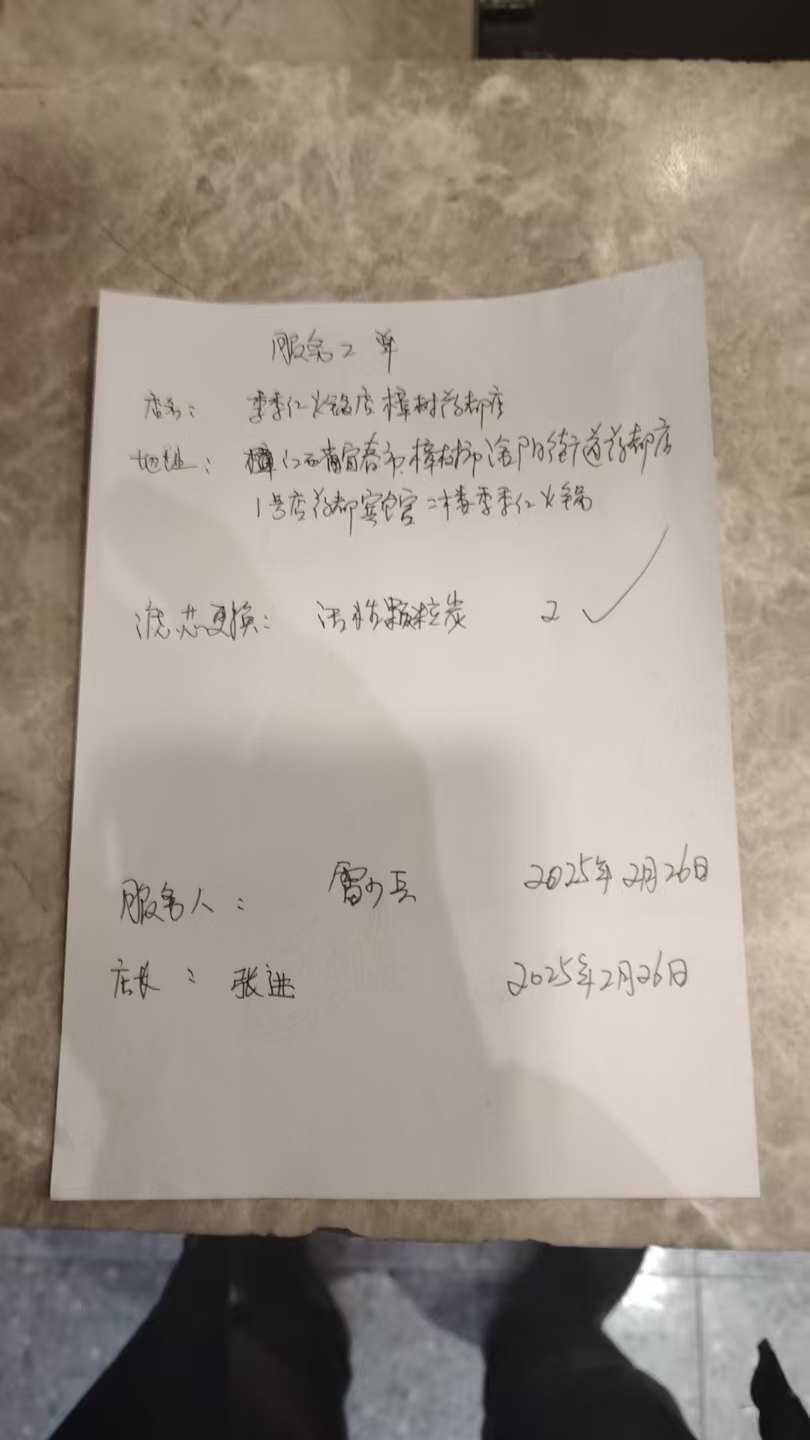 服务工单
店名: 季季红火锅店樟树药都店
地址: 江西省宜春市樟树市淦阳街道药都店
1号店药都宾馆二楼季季红火锅
滤芯更换: 活性颗粒炭 2 ✓
服务人: 雷少兵 2025年2月26日
店长: 张进 2025年2月26日